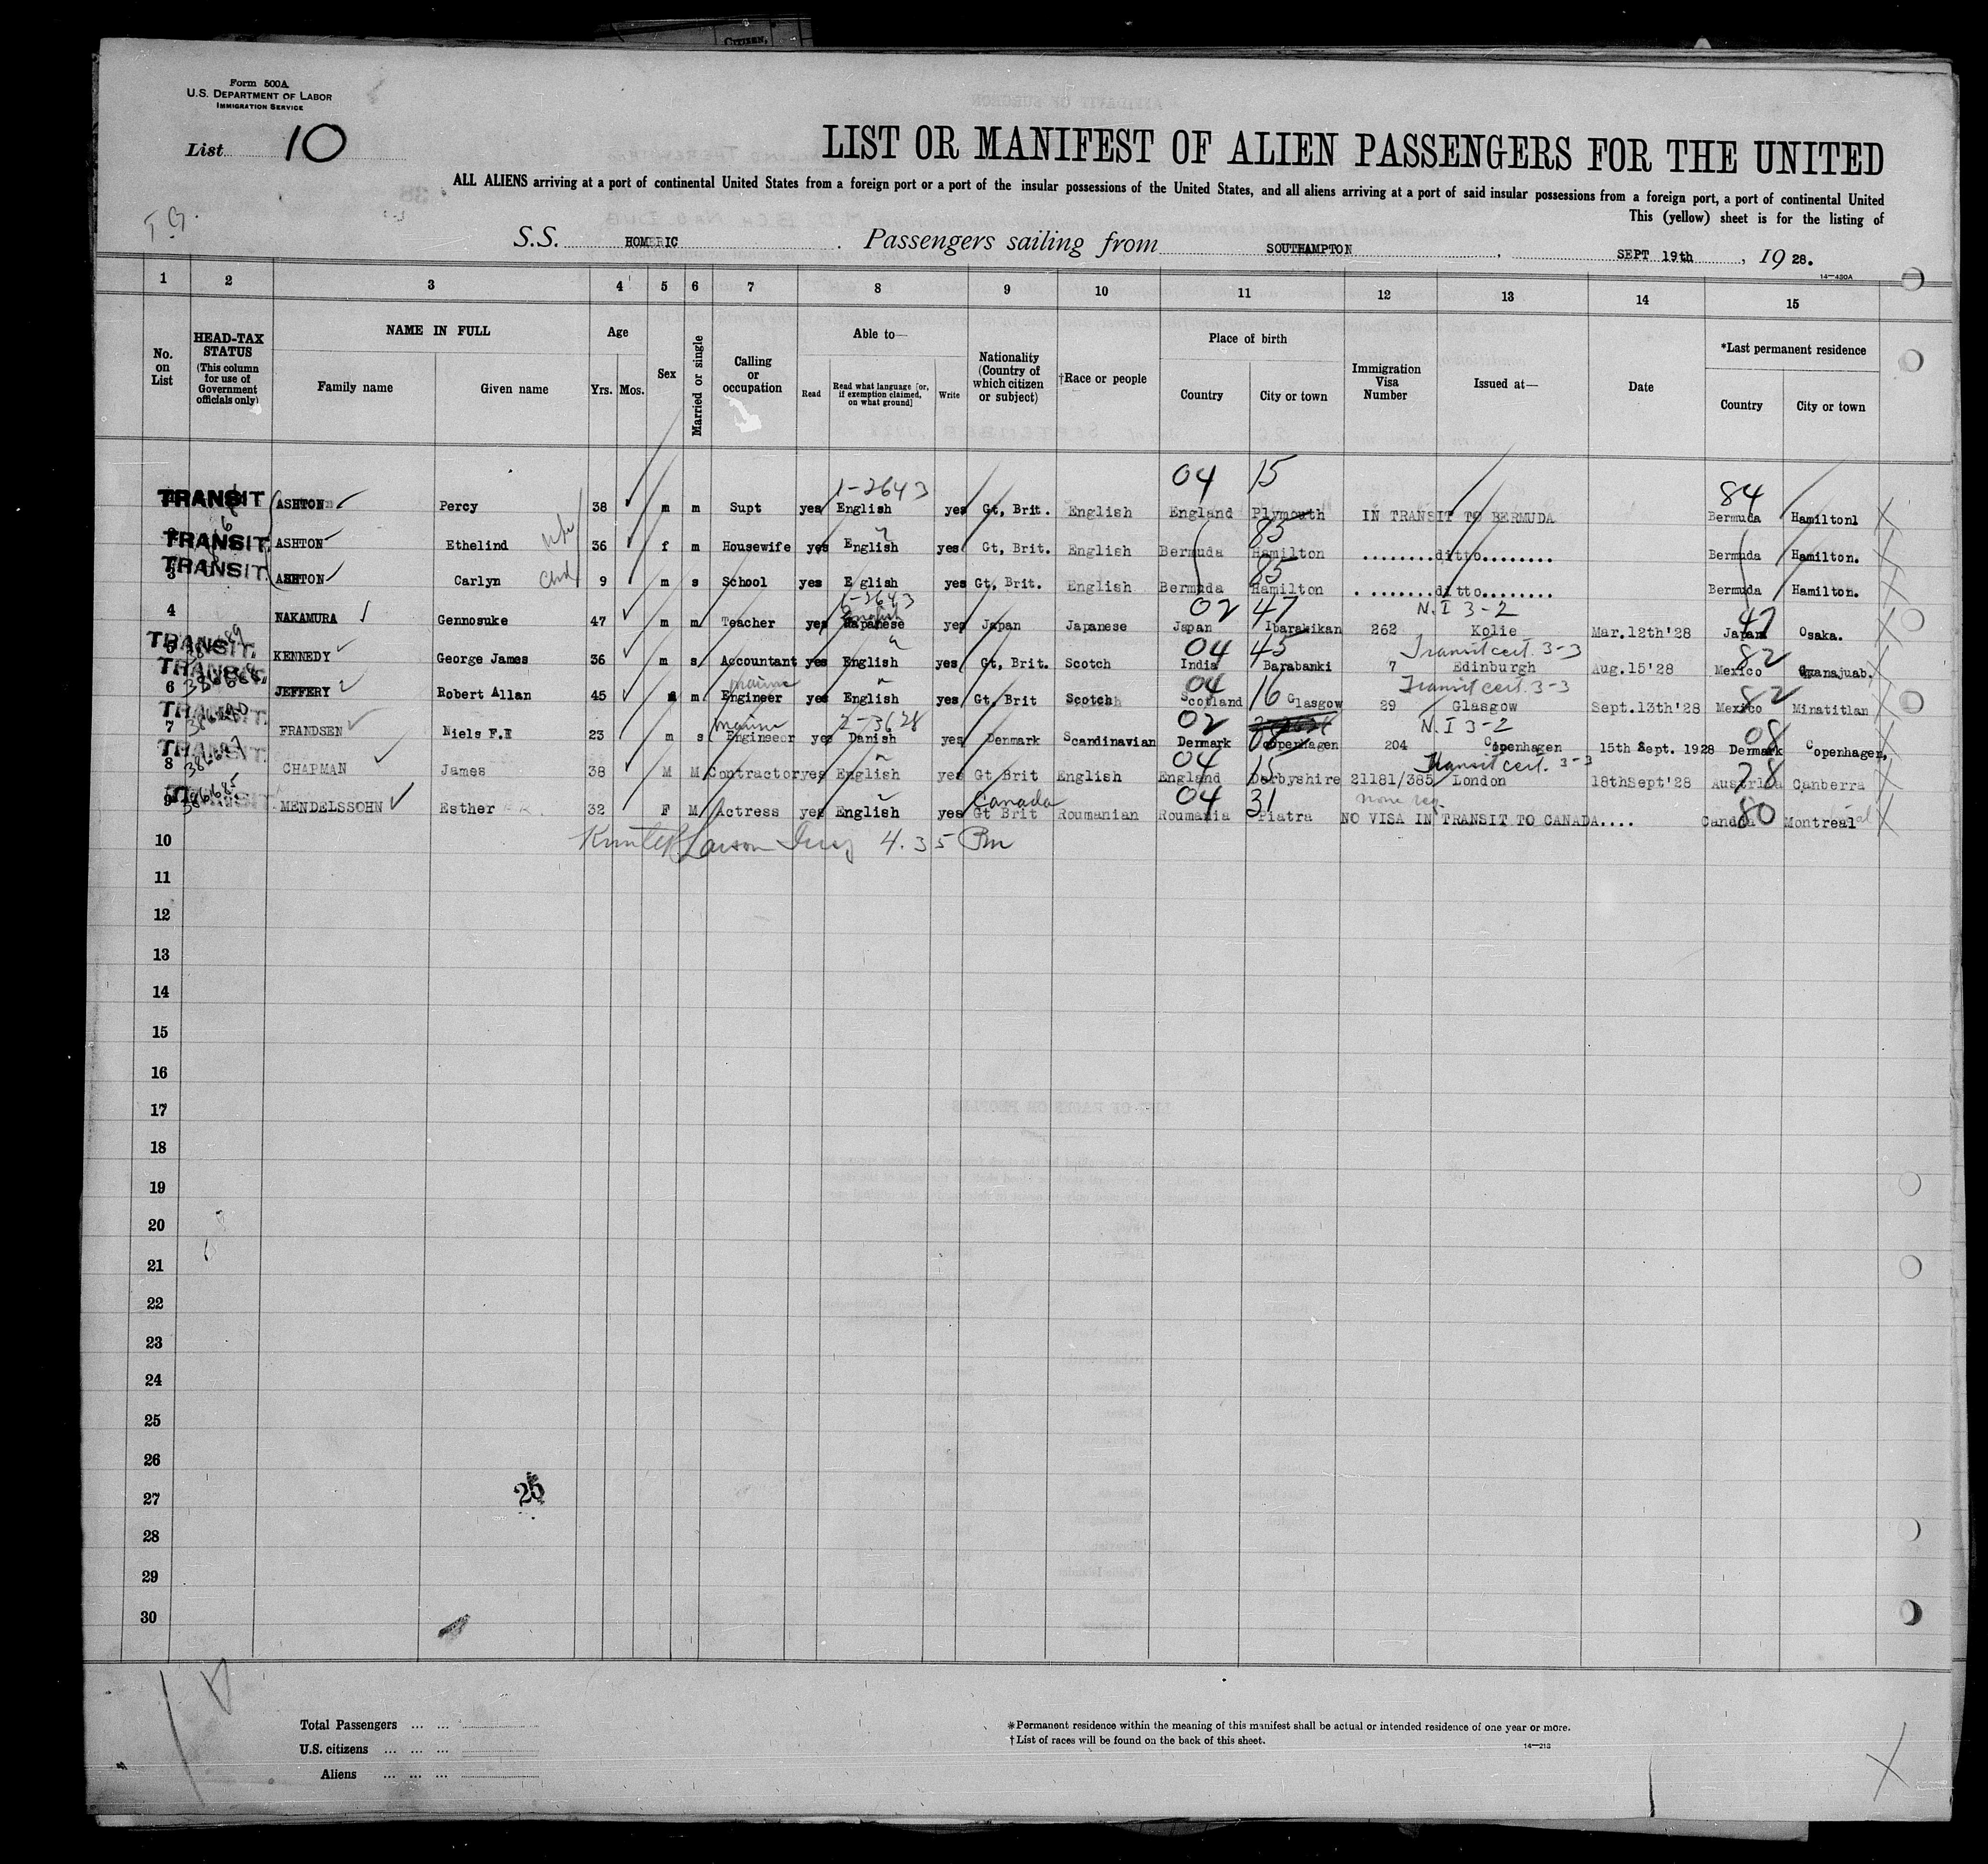 CITIZEN,
Form 500A
U.S. DEPARTMENT OF LABOR
IMMIGRATION SERVICE
List 10
LIST OR MANIFEST OF ALIEN PASSENGERS FOR THE UNITED
ALL ALIENS arriving at a port of continental United States from a foreign port or a port of the insular possessions of the United States, and all aliens arriving at a port of said insular possessions from a foreign port, a port of continental United
This (yellow) sheet is for the listing of
S.S. HOMERIC. Passengers sailing from SOUTHAMPTON, SEPT 19th, 19 28.
14—430A
1 2 3 4 5 6 7 8 9 10 11 12 13 14 15
No. on List
HEAD-TAX STATUS (This column for use of Government officials only)
NAME IN FULL
Family name Given name
Age
Yrs. Mos.
Sex
Married or single
Calling or occupation
Able to—
Read
Read what language [or, if exemption claimed, on what ground]
Write
Nationality (Country of which citizen or subject)
†Race or people
Place of birth
Country City or town
Immigration Visa Number
Issued at—
Date
*Last permanent residence
Country City or town
1-2643 04 15 84
TRANSIT ASHTON Percy 38 m m Supt yes English yes Gt, Brit. English England Plymouth IN TRANSIT TO BERMUDA Bermuda Hamilton
wife 85
TRANSIT. ASHTON Ethelind 36 f m Housewife yes English yes Gt, Brit. English Bermuda Hamilton ........ditto......... Bermuda Hamilton.
chd 85
TRANSIT. 3 ASHTON Carlyn 9 m s School yes E glish yes Gt, Brit. English Bermuda Hamilton . .......ditto........ Bermuda Hamilton.
1-2643 English 02 47 N.I 3-2 47
4 NAKAMURA Gennosuke 47 m m Teacher yes Japanese yes Japan Japanese Japan Ibarakikan 262 Kolie Mar.12th'28 Japan Osaka.
04 45 Transit cert. 3-3 82
TRANSIT. 5 KENNEDY George James 36 m s Accountant yes English yes Gt, Brit. Scotch India Barabanki 7 Edinburgh Aug.15'28 Mexico Guanajuab.
marine 04 16 Transit cert. 3-3 82
TRANSIT. 6 JEFFERY Robert Allan 45 m m Engineer yes English yes Gt, Brit Scotch Scotland Glasgow 29 Glasgow Sept.13th'28 Mexico Minatitlan
marine 2-3628 02 08 N.I 3-2 08
TRANSIT. 7 FRANDSEN Niels F. 23 m s Engineer yes Danish yes Denmark Scandinavian Denmark Copenhagen 204 Copenhagen 15th Sept. 1928 Denmark Copenhagen,
04 15 Transit cert. 3-3 78
TRANSIT. 8 CHAPMAN James 38 M M Contractor yes English yes Gt Brit English England Derbyshire 21181/385 London 18thSept'28 Canberra
Canada 04 31 none req 80
TRANSIT 9 MENDELSSOHN Esther 32 F M Actress yes English yes Gt Brit Roumanian Roumania Piatra NO VISA IN TRANSIT TO CANADA.... Montreal
4.35 Pm
10
11
12
13
14
15
16
17
18
19
20
21
22
23
24
25
26
27
28
29
30
25
Total Passengers
U.S. citizens
Aliens
*Permanent residence within the meaning of this manifest shall be actual or intended residence of one year or more.
†List of races will be found on the back of this sheet.
14—213